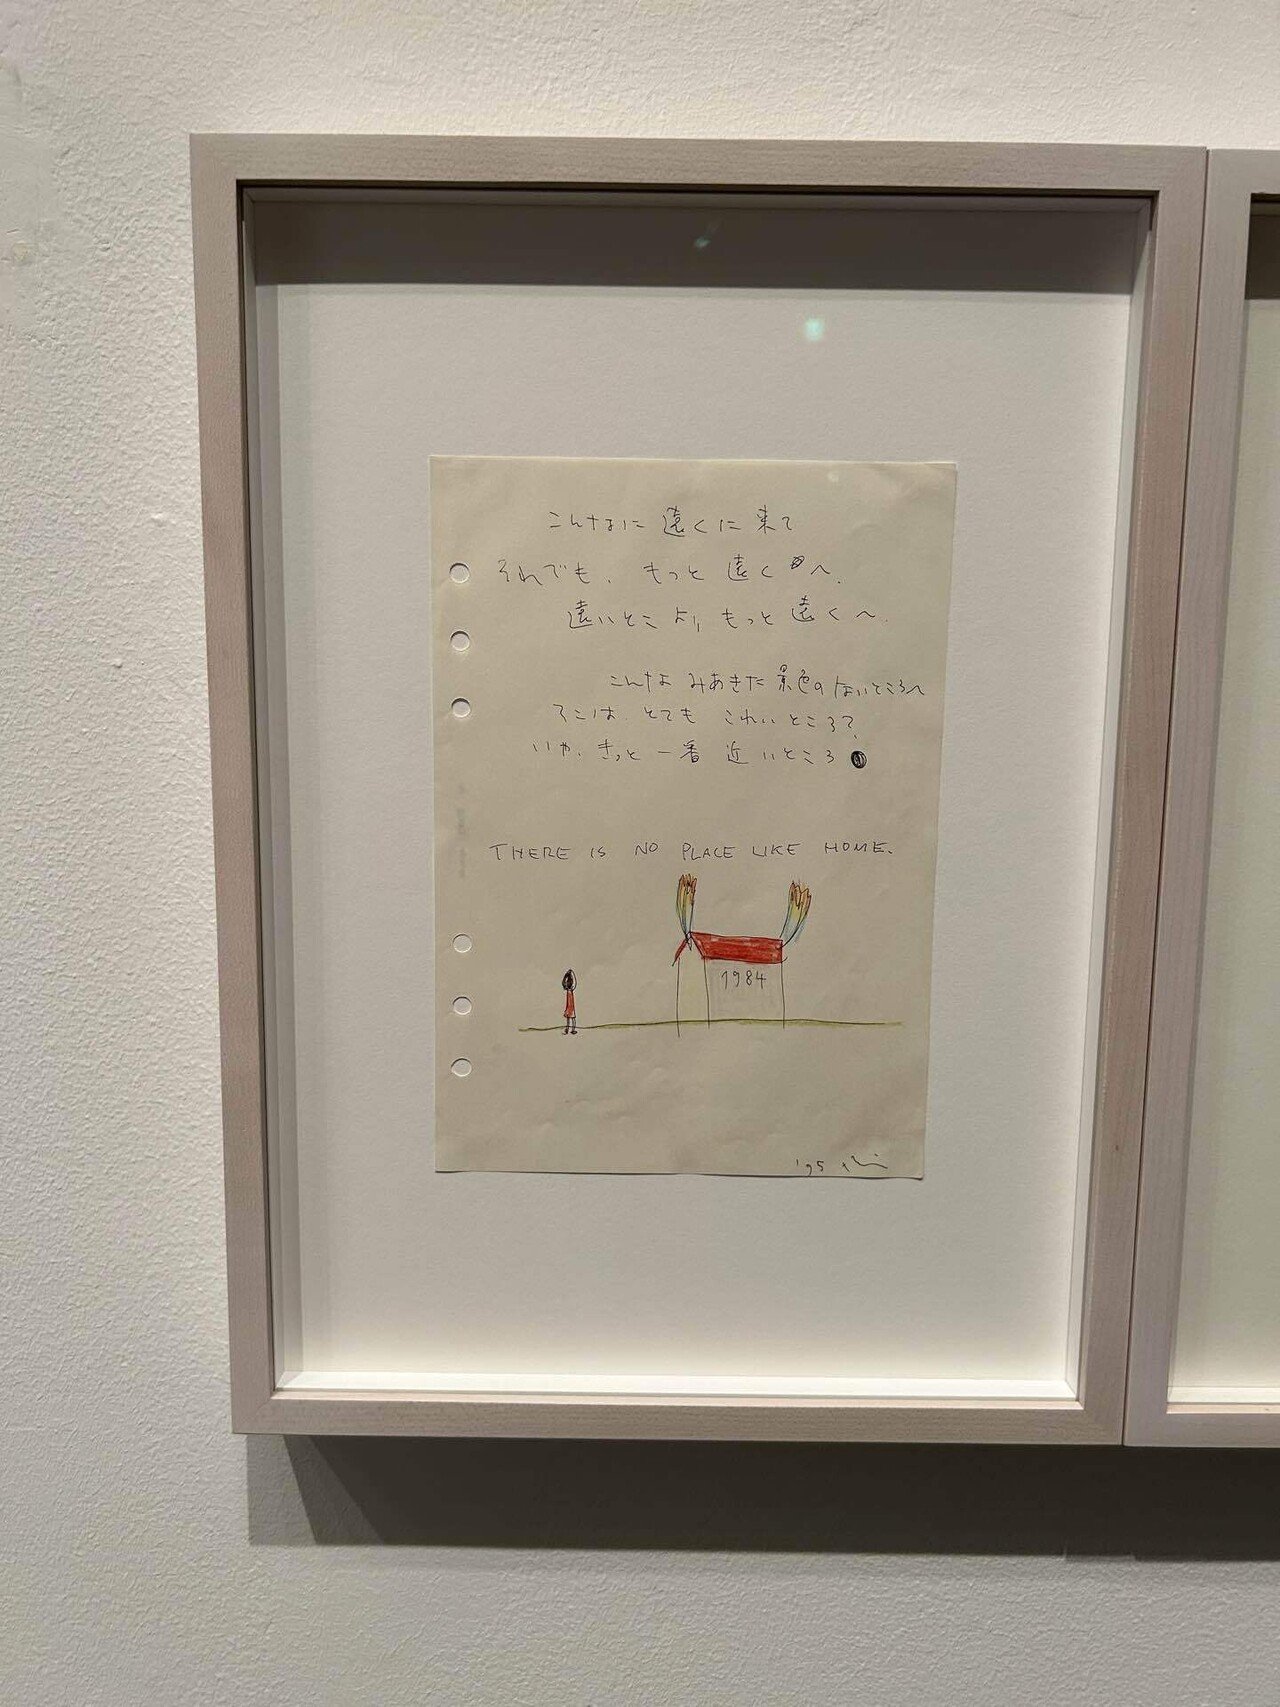 こんなに 遠くに 来て
それでも、もっと 遠くへ、
遠いとこより、もっと 遠くへ、
こんな みあきた 景色の ないところへ
そこは、とても これいところ?
いや、きっと 一番 近いところ
THERE IS NO PLACE LIKE HOME.
1984
'95